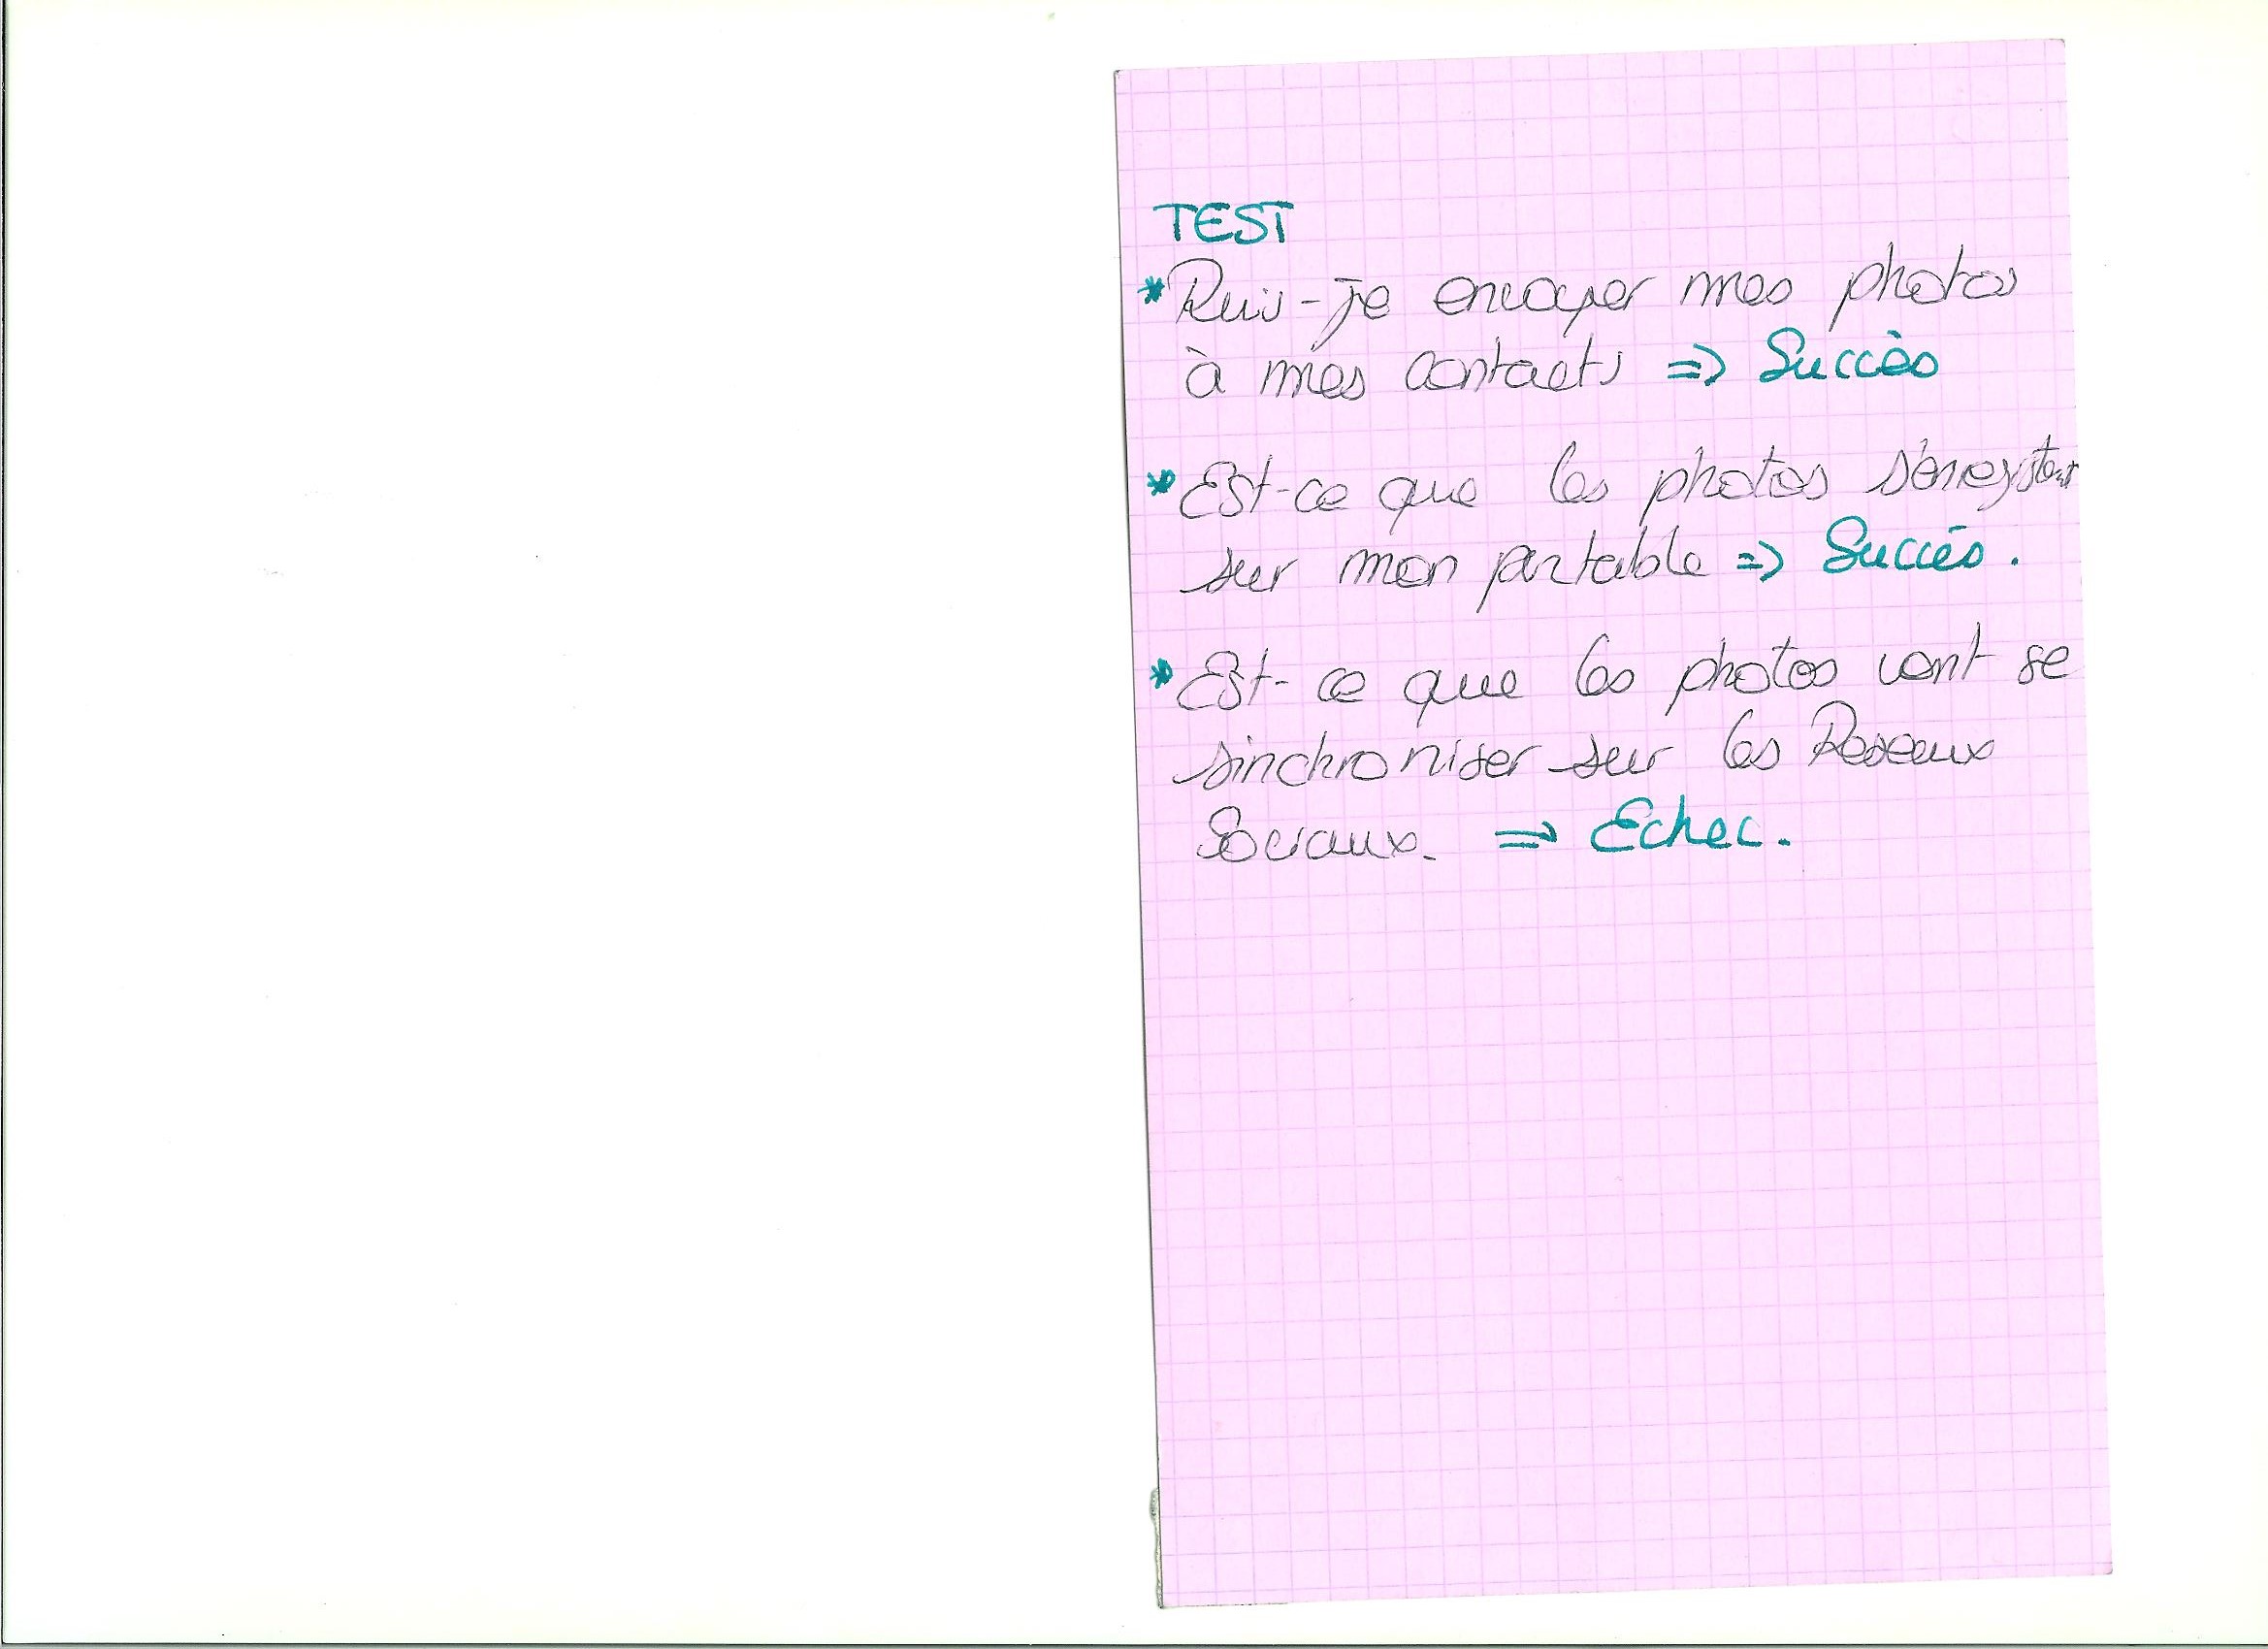 TEST
* Puis-je envoyer mes photos
à mes contacts => Succès
* Est-ce que les photos s'enregistrent
sur mon portable => Succès.
* Est-ce que les photos vont se
sinchroniser sur les Reseaux
Sociaux. => Echec.